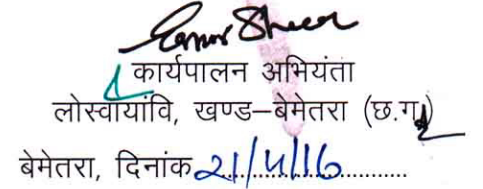 कार्यपालन अभियंता
लोस्वायांवि, खण्ड–बेमेतरा (छ.ग.)
बेमेतरा, दिनांक 21/4/16